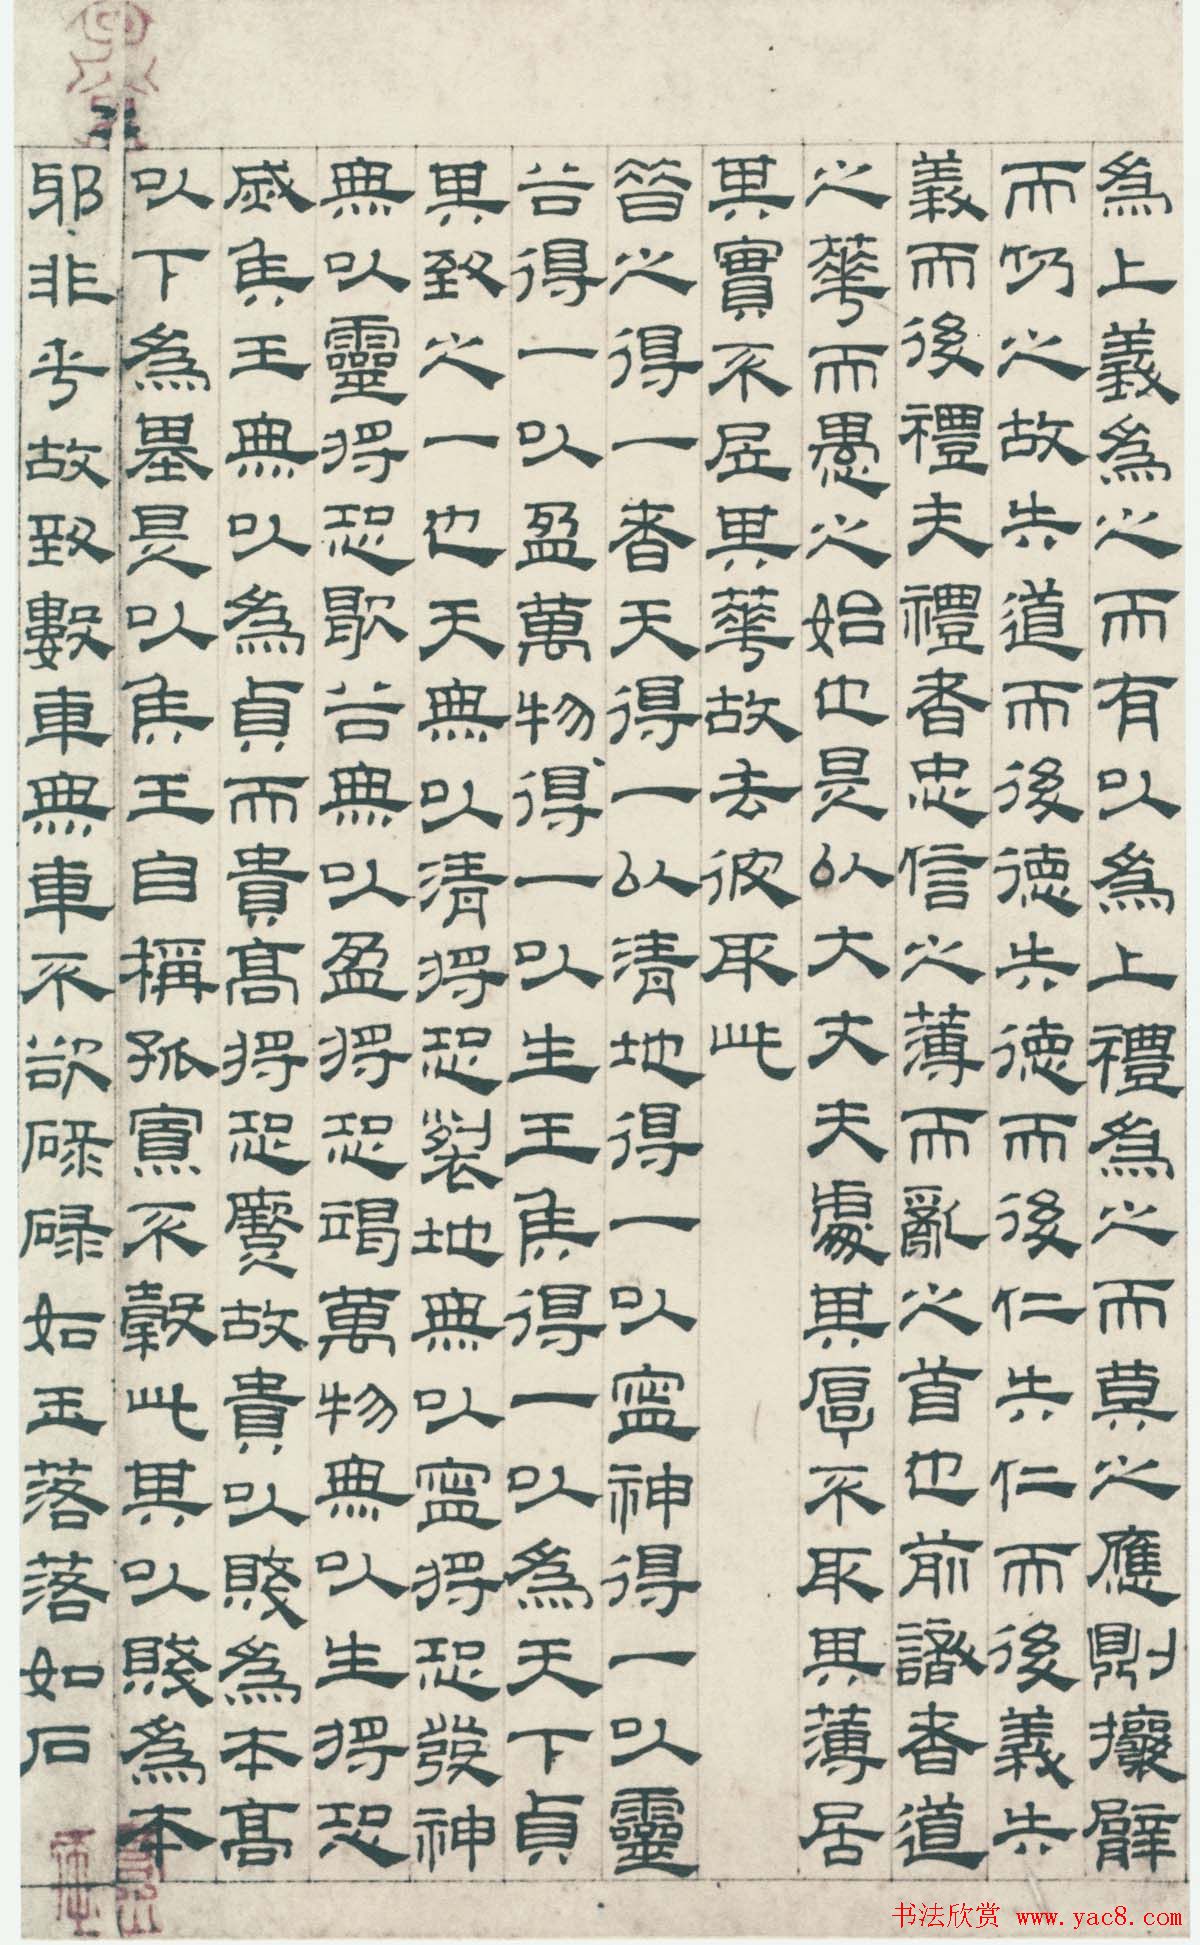 為上義為之而有以為上禮為之而莫之應則攘臂
而仍之故失道而後德失德而後仁失仁而後義失
義而後禮夫禮者忠信之薄而亂之首也前識者道
之華而愚之始也是以大丈夫處其厚不取其薄居
其實不居其華故去彼取此
昔之得一者天得一以清地得一以寧神得一以靈
谷得一以盈萬物得一以生王侯得一以為天下貞
其致之一也天無以清將恐裂地無以寧將恐發神
無以靈將恐歇谷無以盈將恐竭萬物無以生將恐
滅侯王無以為貞而貴高將恐蹷故貴以賤為本高
以下為基是以侯王自稱孤寡不穀此其以賤為本
邪非乎故致數車無車不欲碌碌如玉落落如石
书法欣赏 www.yac8.com